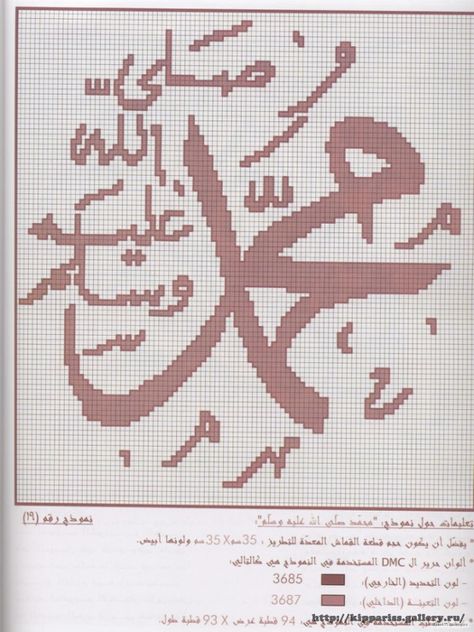 محمد
صلى
الله
عليه
وسلم
تعليمات حول نموذج: "محمّد صلّى الله عليه وسلّم":
نموذج رقم (١٩)
* يفضّل أن يكون حجم قطعة القماش المعدّة للتطريز : 35سم X 35سم ولونها أبيض.
* ألوان حرير ال DMC المستخدمة في النموذج هي كالتالي:
- لون التحديد (الخارجي): 3685
- لون التعبئة (الداخلي): 3687
المستخدمة في النموذج هي: 94 قطبة عرض X 93 قطبة طول.
http://kippariss.gallery.ru/